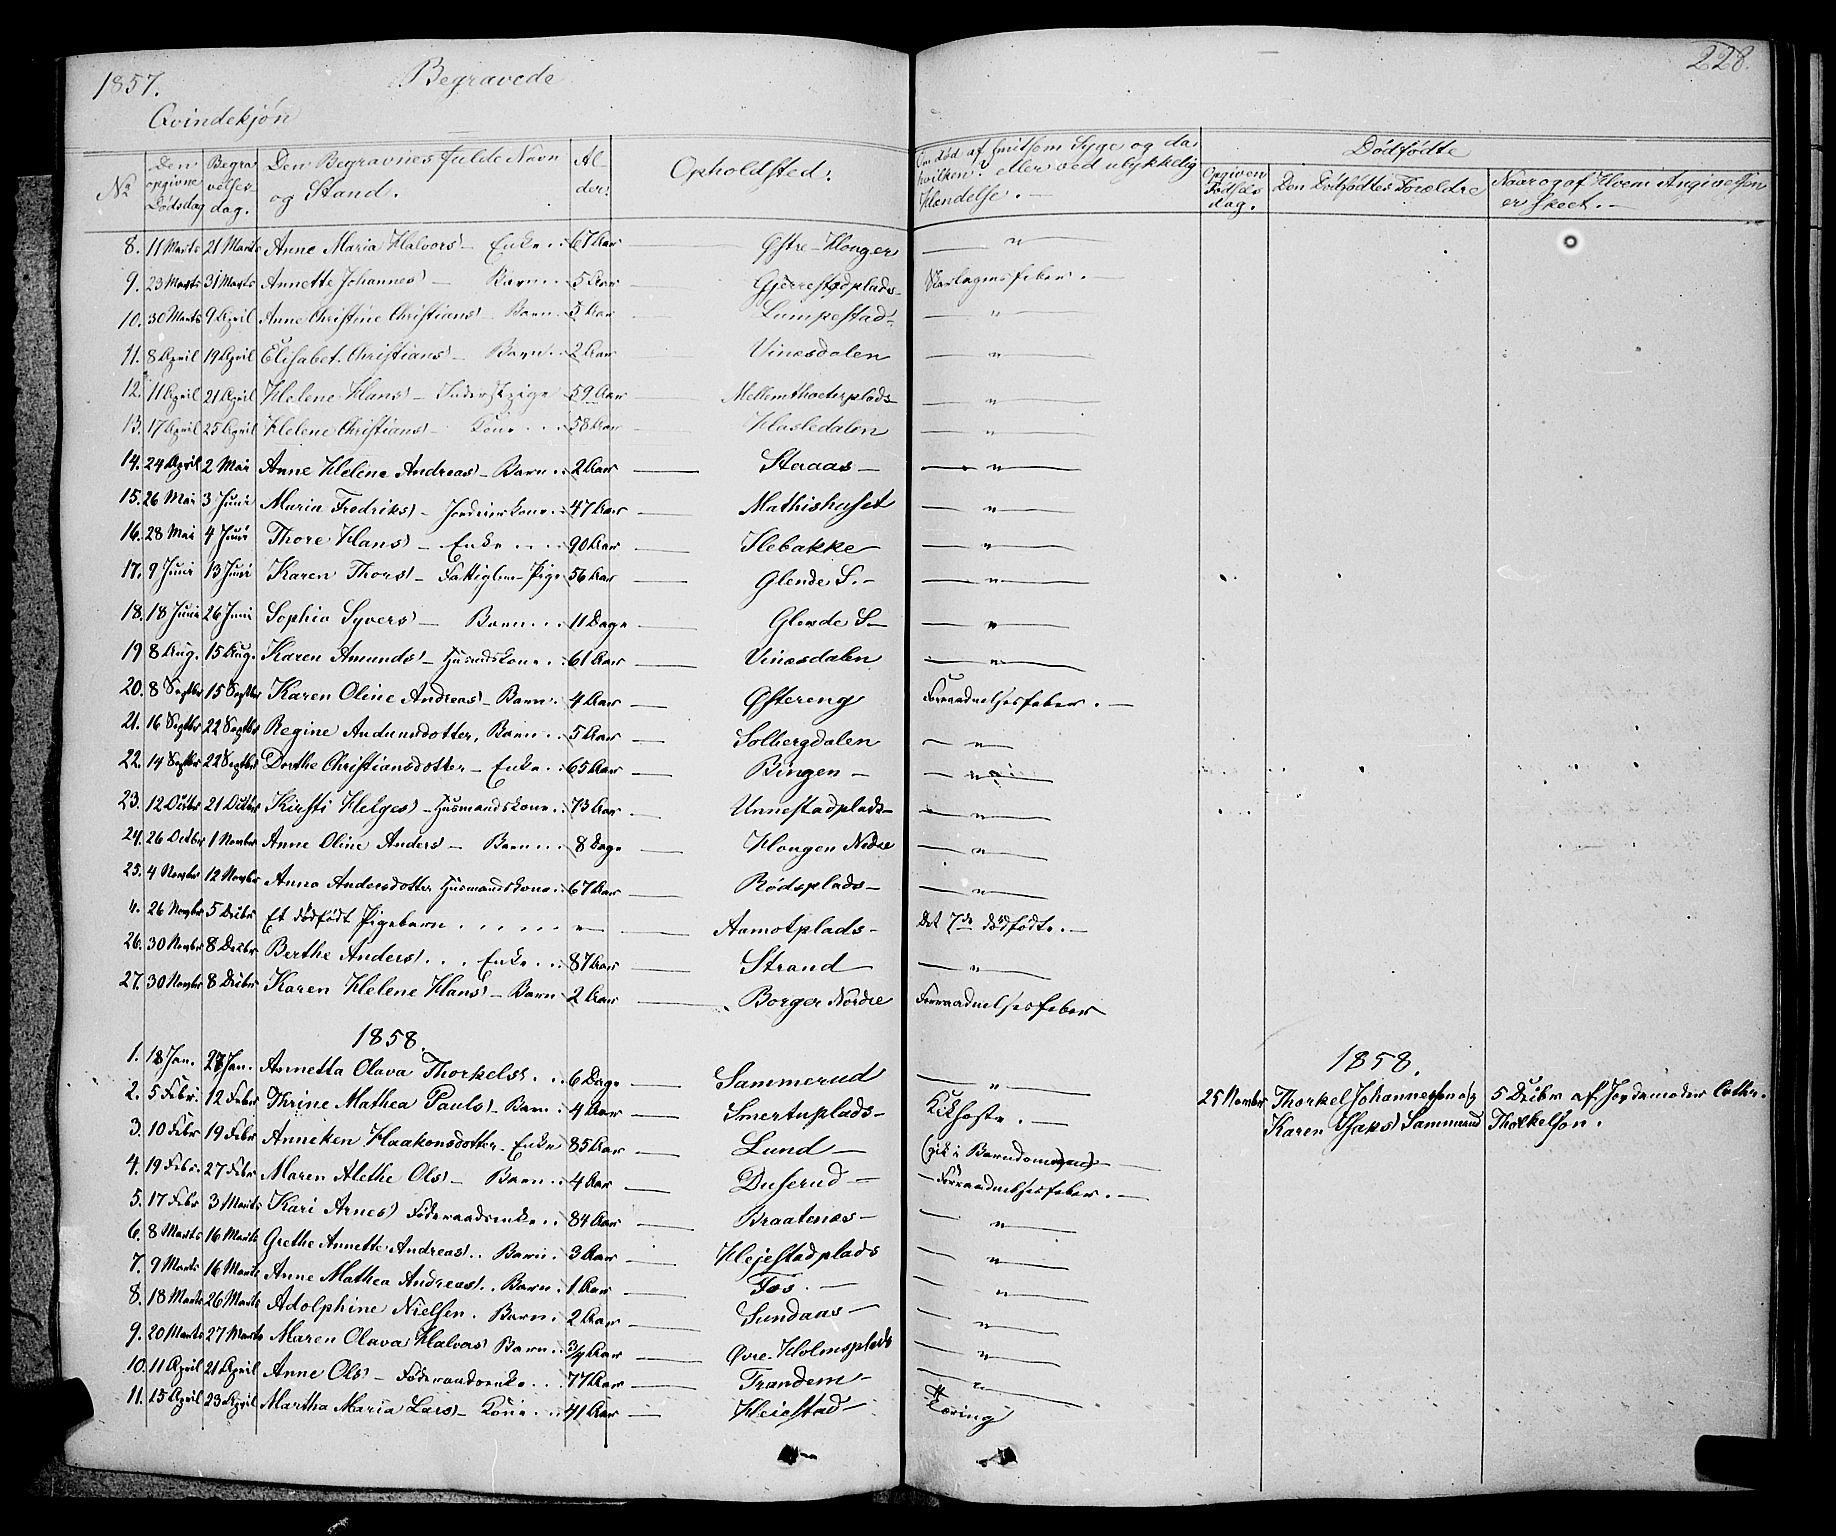 1857. Begravede 228.
Qvindekjön
No Den opgivne Dödsdag Begravelses dag. Den Begravnes fulde Navn og Stand. Alder: Opholdsted: Om død af smitsom Syge og da hvilken? eller ved ulykkelig Hendelse. Dödfödte
Opgiven Födsels dag. Den Dödfödtes Foreldre Naar og af Hvem Angivelsen er skeet.
8. 11 Marts 21 Marts Anne Maria Halvors Enke 67 Aar Østre Hougen "
9. 23 Marts 31 Marts Annette Johannes Barn 5 Aar Gjerrestødplads Skarlagensfeber.
10. 30 Marts 9 April Anne Christine Christians Barn 5 Aar Lumpestad "
11. 8 April 19 April Elisabet Christians Barn 2 Aar Vinæsdalen "
12. 11 April 21 April Helene Hans Inderstpige 59 Aar "
13. 17 April 25 April Helene Christians Kone 58 Aar Hasledalen "
14. 24 April 2 Mai Anne Helene Andreas Barn 2 Aar Staaas "
15. 26 Mai 3 Juni Maria Fredriks 47 Aar Mathishuset "
16. 28 Mai 4 Juni Thore Hans Enke 90 Aar Slebakke "
17. 9 Juni 13 Juni Karen Thors Fattiglem Pige 56 Aar Glende S. "
18. 18 Juni 26 Juni Sophia Syvers Barn 11 Dage Glende S "
19 8 Aug. 15 Aug. Karen Amunds Husmdskone 61 Aar Vinæsdalen "
20. 8 Septbr 15 Septbr Karen Oline Andreas Barn 4 Aar Østereng Forraadnelsesfeber.
21. 16 Septbr 22 Septbr Regine Andunsdotter, Barn 5 Aar Solbergdalen "
22. 14 Septbr 22 Septbr Dorthe Christiansdotter Enke 65 Aar Bingen "
23. 12 Octbr 21 Octbr Kirsti Helges Husmandskone 73 Aar Unnestadplads "
24. 26 Octbr 1 Novmbr Anne Oline Anders Barn 8 Dage Hougen Nedre "
25. 4 Novmbr 12 Novmbr Anna Andersdotter Husmandskone 67 Aar Rödsplads "
4. 26 Novmbr 5 Decbr Et dödfödt Pigebarn " Aamotplads Det 7de dödfödte.
26. 30 Novmbr 8 Decbr Berthe Anders Enke 87 Aar Strand "
27. 30 Novmbr 8 Decbr Karen Helene Hans Barn 2 Aar Borger Nordre Forraadnelsesfeber
1858. 1858.
1. 18 Jan. 27 Jan. Annetta Olava Thorkels 6 Dage Sammerud " 25 Novmbr Thorkel Johannessen og 5 Decbr af Jordemoder Cathr.
2. 5 Febr. 12 Febr Thrine Mathea Pauls Barn 4 Aar Smertuplads Kikhoste. Karen Isaks Sammerud Thorkelson.
3. 10 Febr 19 Febr Anneken Haakonsdotter Enke 85 Aar Lund
4. 19 Febr. 27 Febr Maren Alethe Ols Barn 4 Aar Duserud Forraadnelsesfeber.
5. 17 Febr 3 Marts Kari Arnes Föderaadsenke 84 Aar Braatenæs "
6. 8 Marts 16 Marts Grethe Annette Andreas Barn 3 Aar Hejestadplads "
7. 9 Marts 16 Marts Anne Mathea Andreas Barn 1 Aar Fos "
8. 18 Marts 26 Marts Adolphine Nielsen Barn 2 Aar Sundaas "
9. 20 Marts 27 Marts Maren Olava Halvors Barn 3/4 Aar Øvre Holmsplads "
10. 11 April 21 April Anne Ols Föderaadsenke 77 Aar Trandem "
11. 15 April 23 April Martha Maria Lars Kone 41 Aar Heiestad Tæring